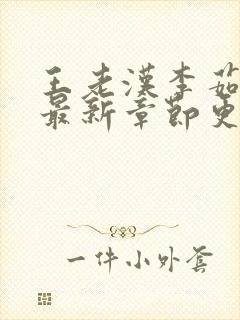 王老汉李茹
最新章节更
一件小外套